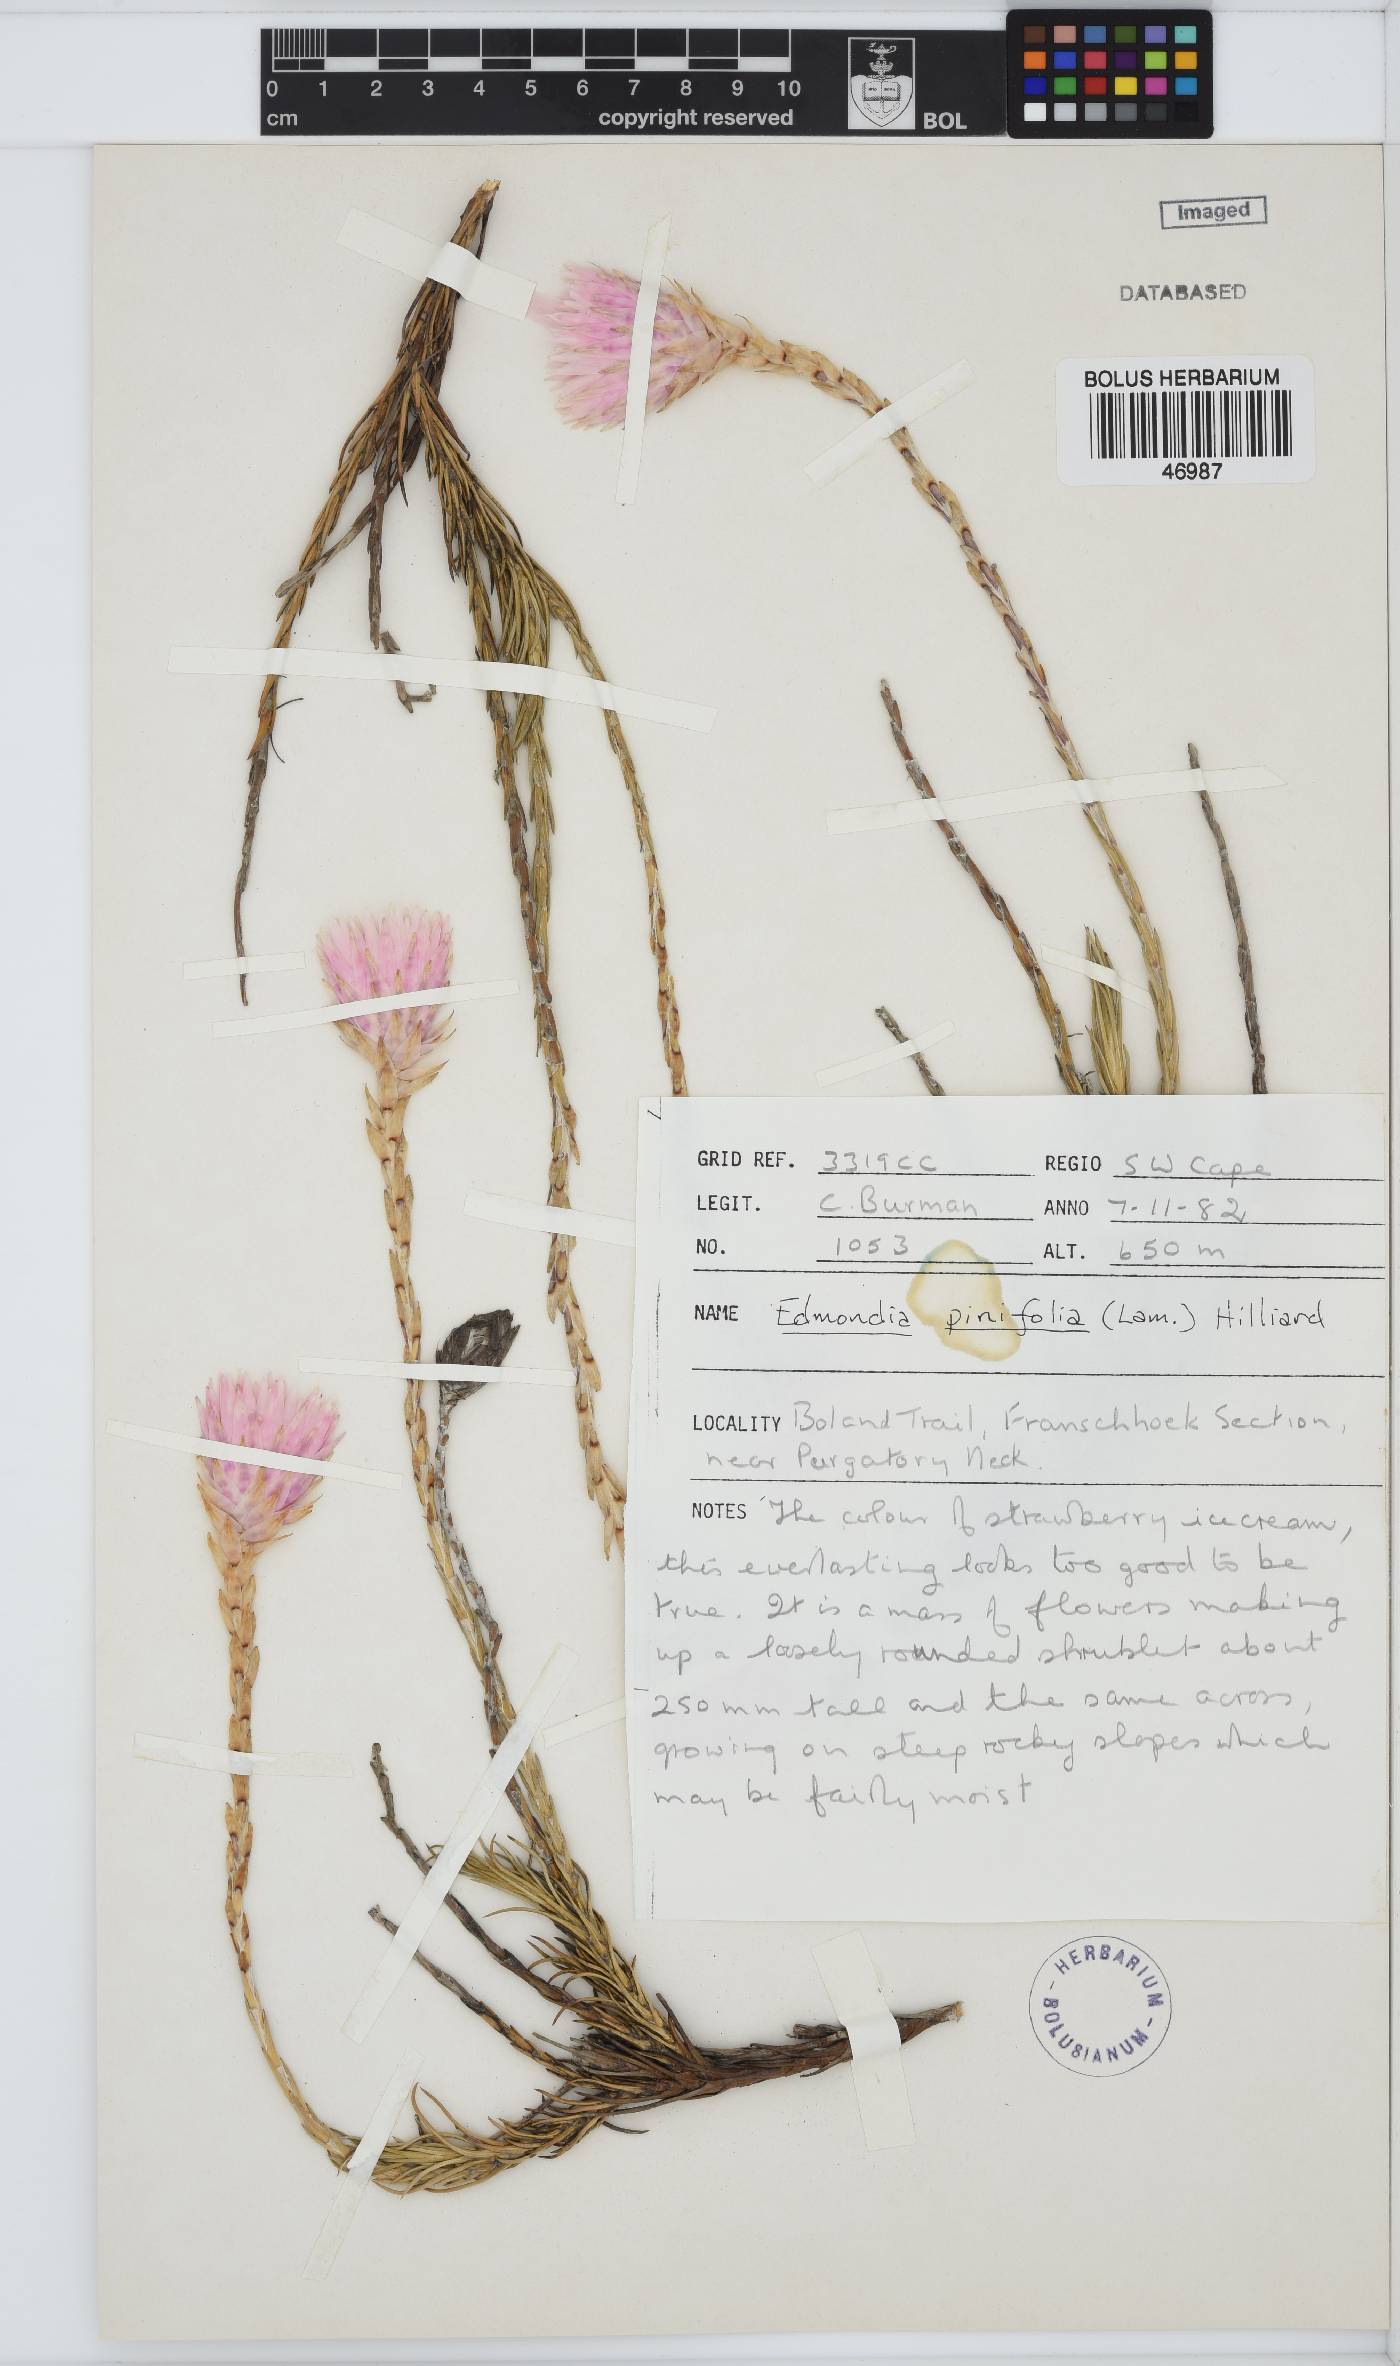 0 1 2 3 4 5 6 7 8 9 10
cm copyright reserved
BOL
Imaged
DATABASED
BOLUS HERBARIUM
46987
GRID REF. 3319CC REGIO SW Cape
LEGIT. C. Burman ANNO 7-11-82
NO. 1053 ALT. 650 m
NAME Edmondia pinifolia (Lam.) Hilliard
LOCALITY Boland Trail, Franschhoek Section,
near Purgatory Neck.
NOTES The colour of strawberry icecream,
this everlasting looks too good to be
true. It is a mass of flowers making
up a loosely rounded shrublet about
250mm tall and the same across,
growing on steep rocky slopes which
may be fairly moist
HERBARIUM
BOLUSIANUM